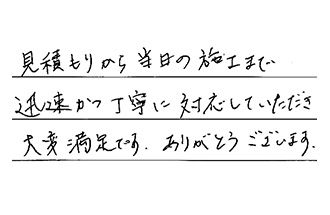 見積もりから当日の施工まで
迅速かつ丁寧に対応していただき
大変満足です。ありがとうございます。